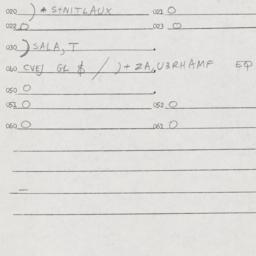 020 ) * S+NITLAUX 021 O
022 O 023 O
030 ) SALA, T
040 CVEJ GL $ / ) + ZA, U3RHAMF EQ
050 O
051 O 052 O
060 O 061 O